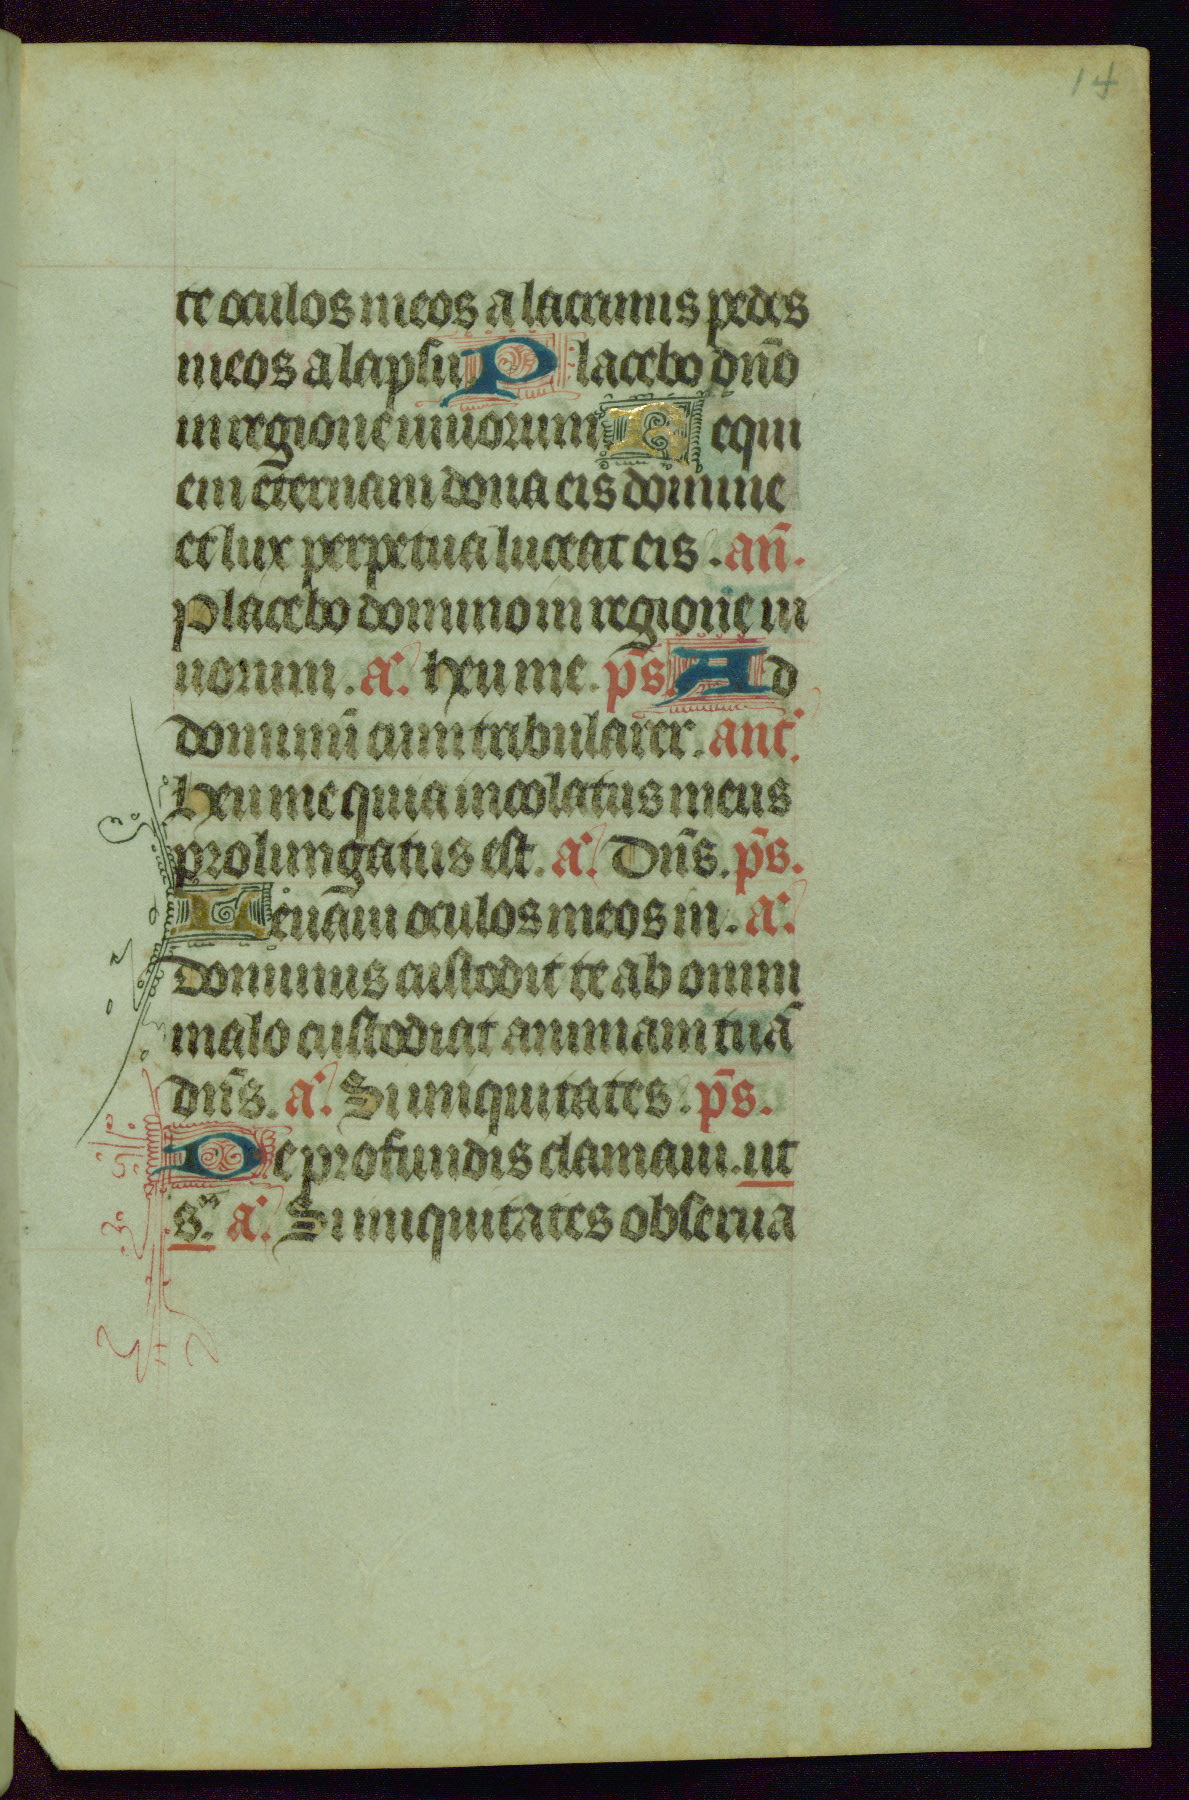 14
te oculos meos a lacrimis pedes
meos a lapsu Placebo dño
in regione uiuorum Requi
em eternam dona eis domine
et lux perpetua luceat eis . añ.
Placebo domino in regione ui
uorum . a. heu me . ps̄ Ad
dominū cum tribularer . ant.
Heu me quia incolatus meus
prolungatus est . a. Dñs . ps̄.
Leuaui oculos meos in . a.
Dominus custodit te ab omni
malo custodiat animam tuā
dñs. a. Si iniquitates . ps̄.
De profundis clamaui . ut
s. a. Si iniquitates obserua